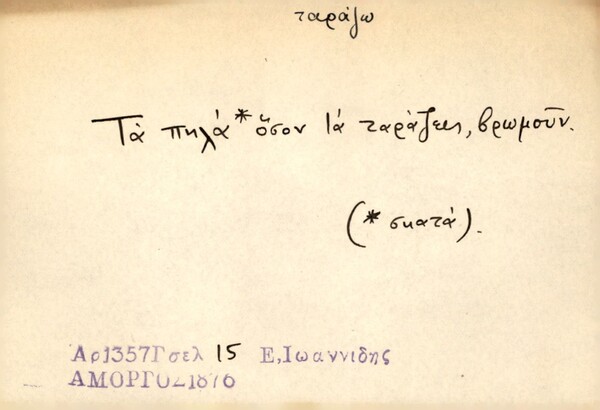 ταράζω
Τὰ πηλά * ὅσον τά ταράζεις, βρωμοῦν.
(* σκατά).
Αρ1357Γσελ 15 Ε,Ιωαννιδης
ΑΜΟΡΓΟΣ1876